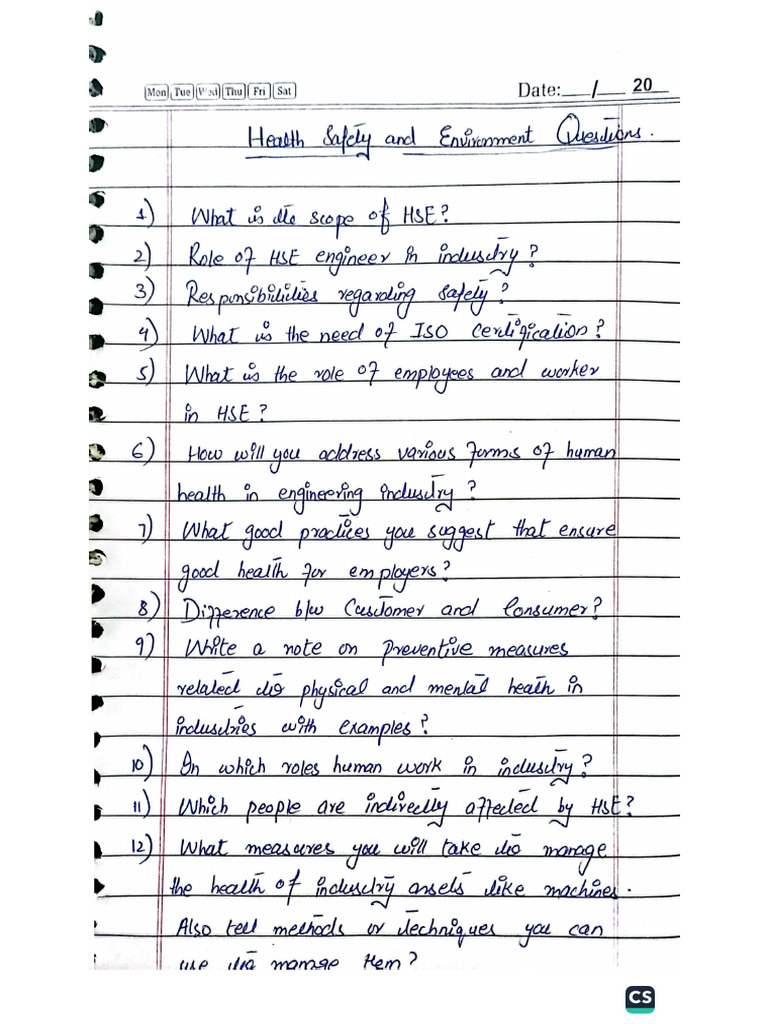 Mon Tue Wed Thu Fri Sat Date:__/__ 20__
Health Safety and Environment Questions.
1) What is the scope of HSE?
2) Role of HSE engineer in industry?
3) Responsibilities regarding safety?
4) What is the need of ISO certification?
5) What is the role of employees and worker
in HSE?
6) How will you address various forms of human
health in engineering industry?
7) What good practices you suggest that ensure
good health for employers?
8) Difference b/w Customer and Consumer?
9) Write a note on preventive measures
related to physical and mental health in
industries with examples?
10) In which roles human work in industry?
11) Which people are indirectly affected by HSE?
12) What measures you will take to manage
the health of industry assets like machines.
Also tell methods or techniques you can
use to manage them?
CS